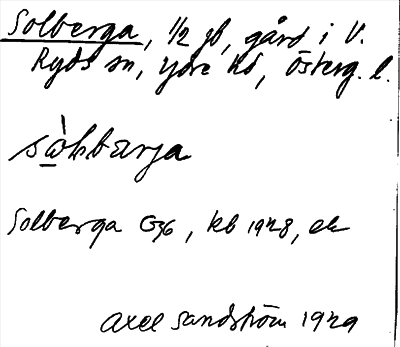 Solberga, 1/2 gb, gård i V.
Ryds sn, Ydre hd, Österg. l.
Solberga G36, kb 1928, ek
Axel Sandström 1929